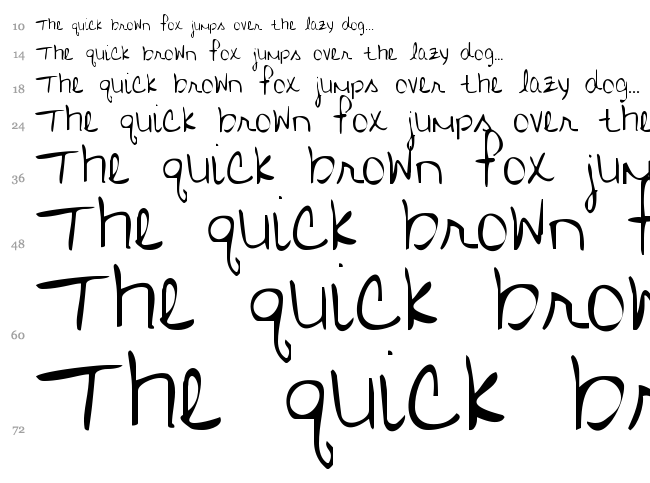 10 The quick brown fox jumps over the lazy dog...
14 The quick brown fox jumps over the lazy dog...
18 The quick brown fox jumps over the lazy dog...
24 The quick brown fox jumps over the
36 The quick brown fox jum
48 The quick brown f
60 The quick brow
72 The quick br